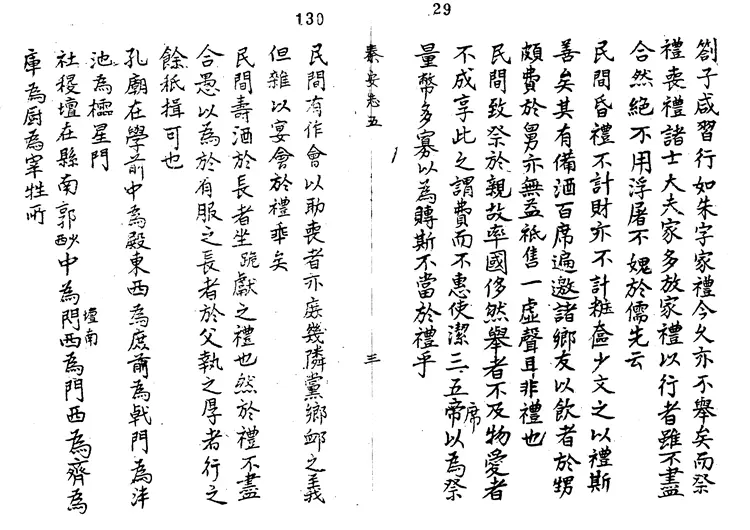 29
劄子咸習行如朱字家禮今久亦不舉矣而祭
禮喪禮諸士大夫家多放家禮以行者雖不盡
合然絕不用浮屠不媿於儒先云
民間昏禮不計財亦不計粧奩少文之以禮斯
善矣其有備酒百席遍邀諸鄉友以飲者於甥
頗費於舅亦無益祗售一虛聲耳非禮也
民間致祭於親故率國侈然舉者不及物愛者
不成享此之謂費而不惠使潔三五席帝以為祭
量幣多寡以為賻斯不當於禮乎
秦安志五
三
130
民間有作會以助喪者亦庶幾隣黨鄉邮之義
但雜以宴會於禮乖矣
民間壽酒於長者坐跪獻之禮也然於禮不盡
合愚以為於有服之長者於父執之厚者行之
餘祗揖可也
孔廟在學前中為殿東西為庶前為戟門為泮
池為櫺星門
社稷壇在縣南郭西中為門西為門壇南西為齊為
庫為厨為宰牲所